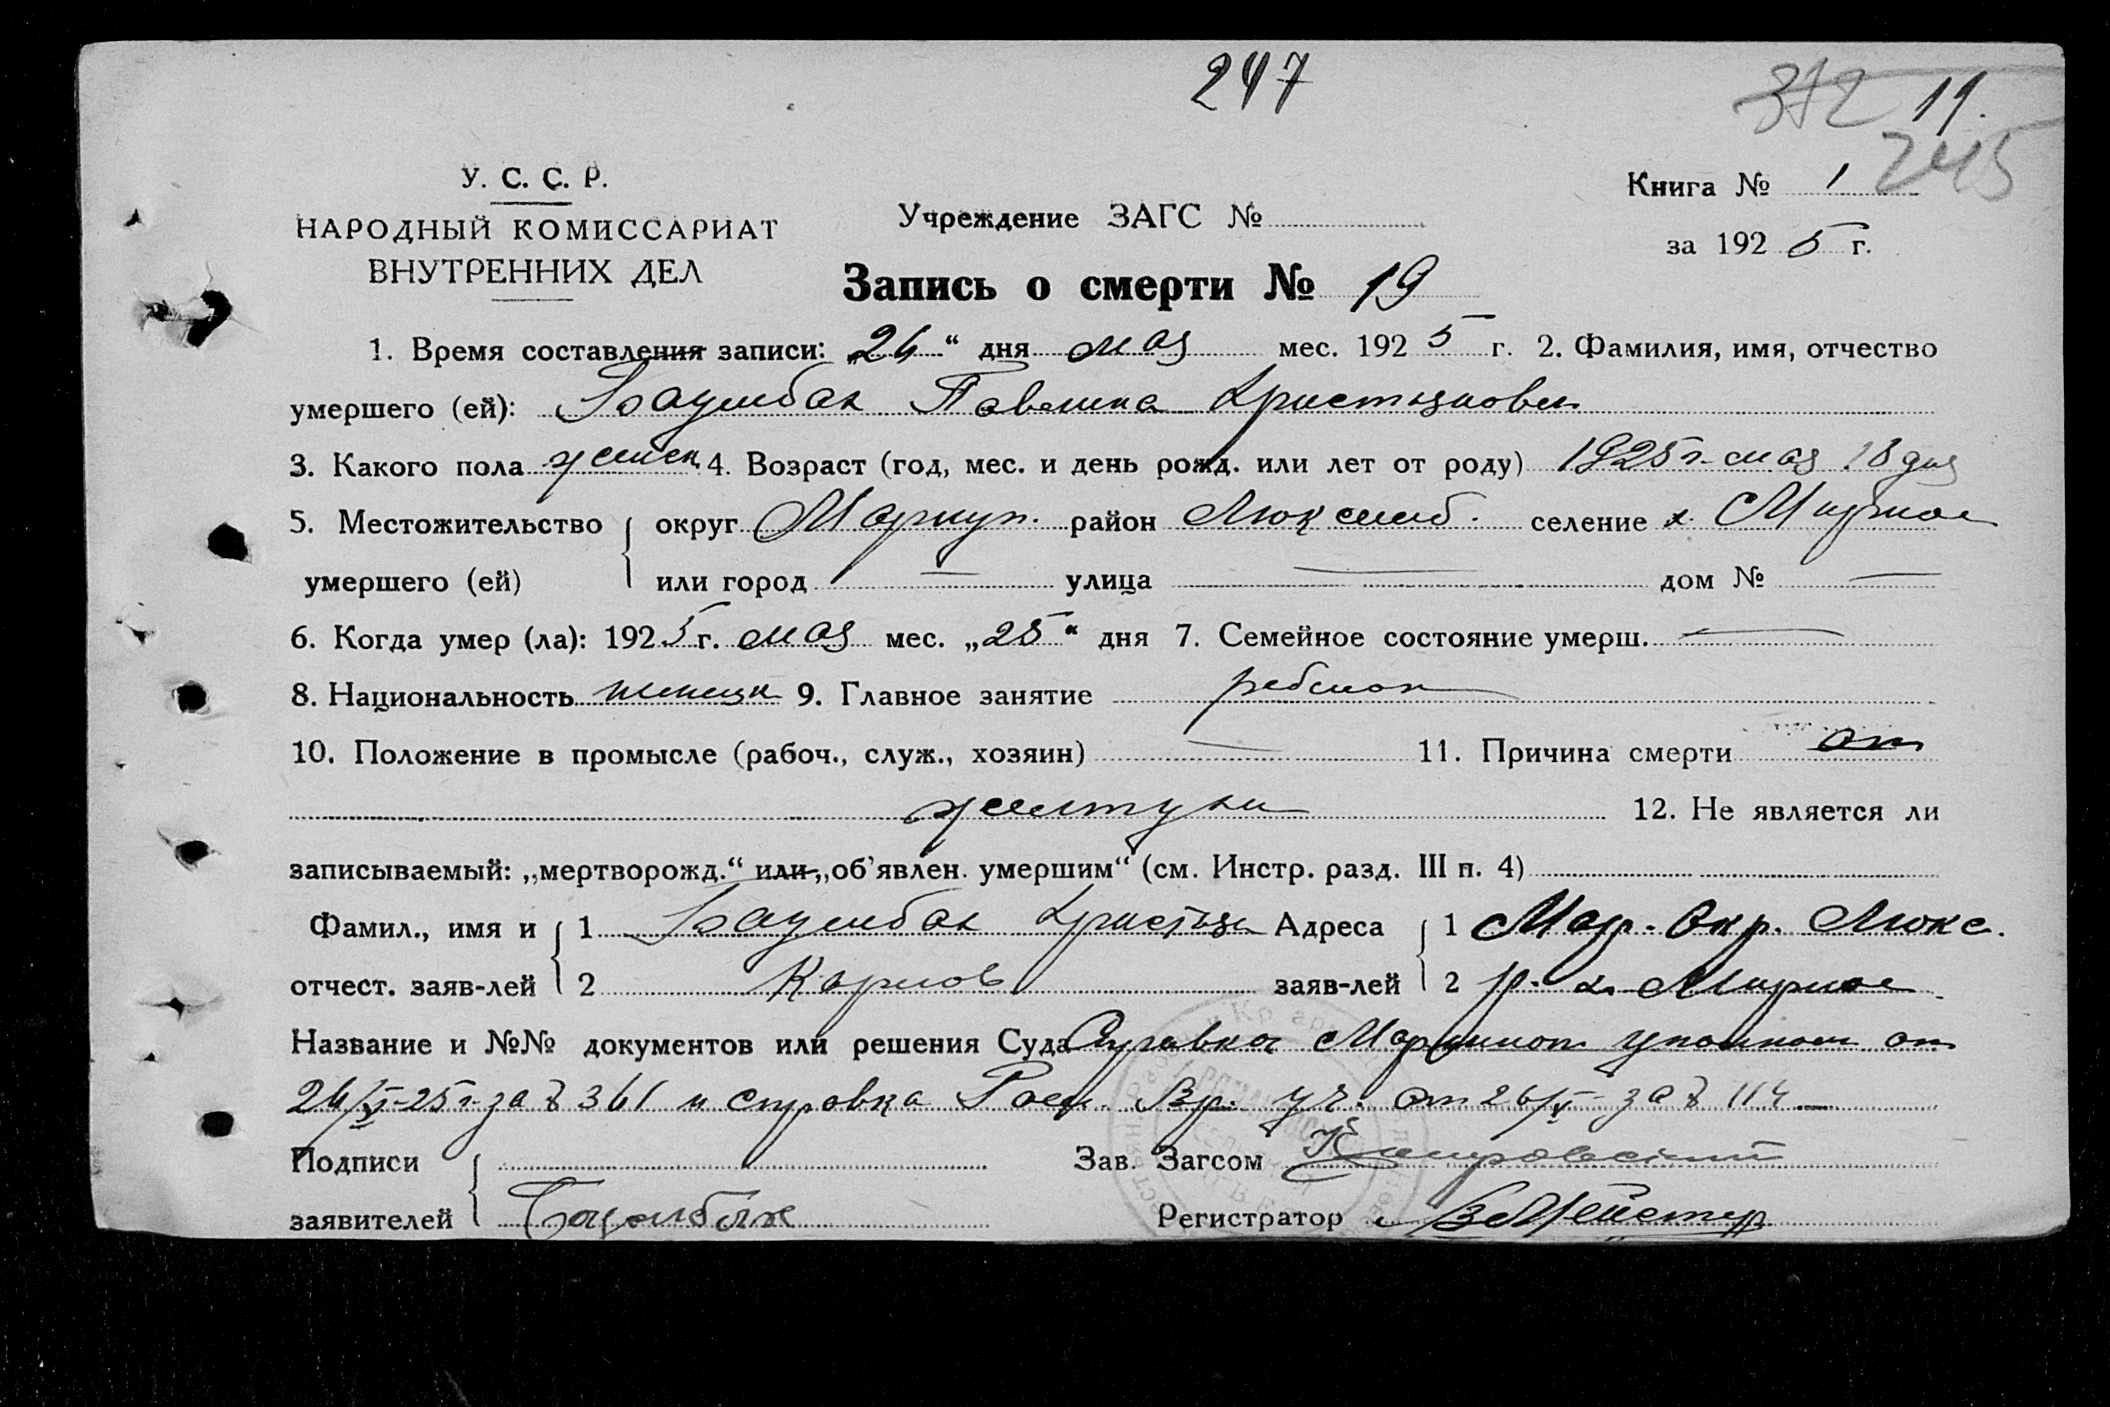 247
372 11.
245
У. С. С. Р.
НАРОДНЫЙ КОМИССАРИАТ
ВНУТРЕННИХ ДЕЛ
Книга № 1
за 1925 г.
Учреждение ЗАГС №
Запись о смерти № 19
1. Время составления записи: „26“ дня мая мес. 1925 г. 2. Фамилия, имя, отчество
умершего (ей): Баумбах Павлина Христьяновн
3. Какого пола женск 4. Возраст (год, мес. и день рожд. или лет от роду) 1925 г. мая 18 дня
5. Местожительство округ Мариуп. район Люксемб. селение х. Мирное
умершего (ей) или город — улица — дом № —
6. Когда умер (ла): 1925 г. мая мес. „25“ дня 7. Семейное состояние умерш. —
8. Национальность немецк 9. Главное занятие ребенок
10. Положение в промысле (рабоч., служ., хозяин) — 11. Причина смерти от
желтухи 12. Не является ли
записываемый: „мертворожд.“ или „об’явлен. умершим“ (см. Инстр. разд. III п. 4)
Фамил., имя и 1 Баумбах Христьян Адреса 1 Мар. Окр. Люкс.
отчест. заяв-лей 2 Карлов заяв-лей 2 р. х. Мирное
Название и №№ документов или решения Суда Справка от
26/V-25 г. за № 361 и справка Вр. уч. от 26/V за № 114
Подписи Зав. Загсом
заявителей Баумбах Регистратор